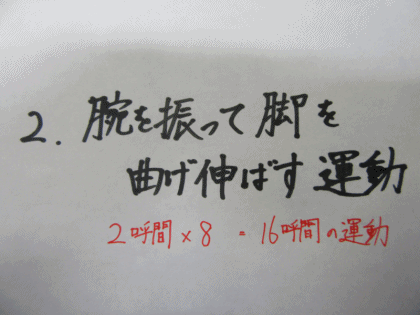 2. 腕を振って脚を
曲げ伸ばす運動
2呼間×8 = 16呼間の運動